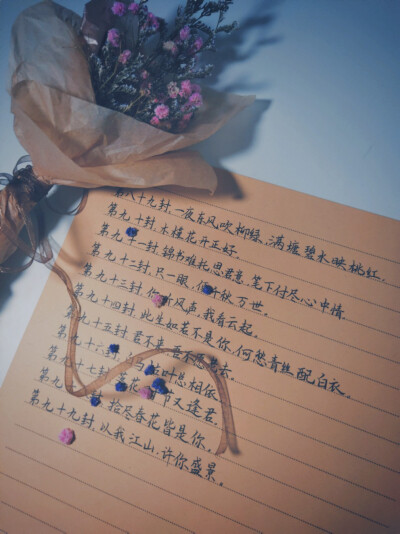 第八十九封,一夜东风吹柳绿,满塘碧水映桃红.
第九十封,木槿花开正好.
第九十一封,锦书难托思君意,笔下付尽心中情.
第九十二封,只一眼,秋万世.
第九十三封,你听风声,我看云起。
第九十四封,此生如若不是你,何愁青丝配白衣.
第九十五封,君不来,老去.
第九十叶总相依.
第九十七封,花节又逢君.
第九封,拾尽春花皆是你.
第九十九封,以我江山,许你盛景.